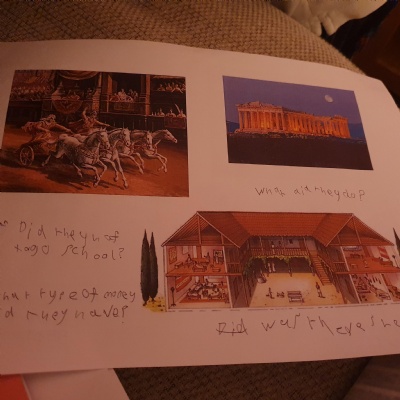 What did they do?
Did they not
to go school?
what type of money
did they have?
Did was there